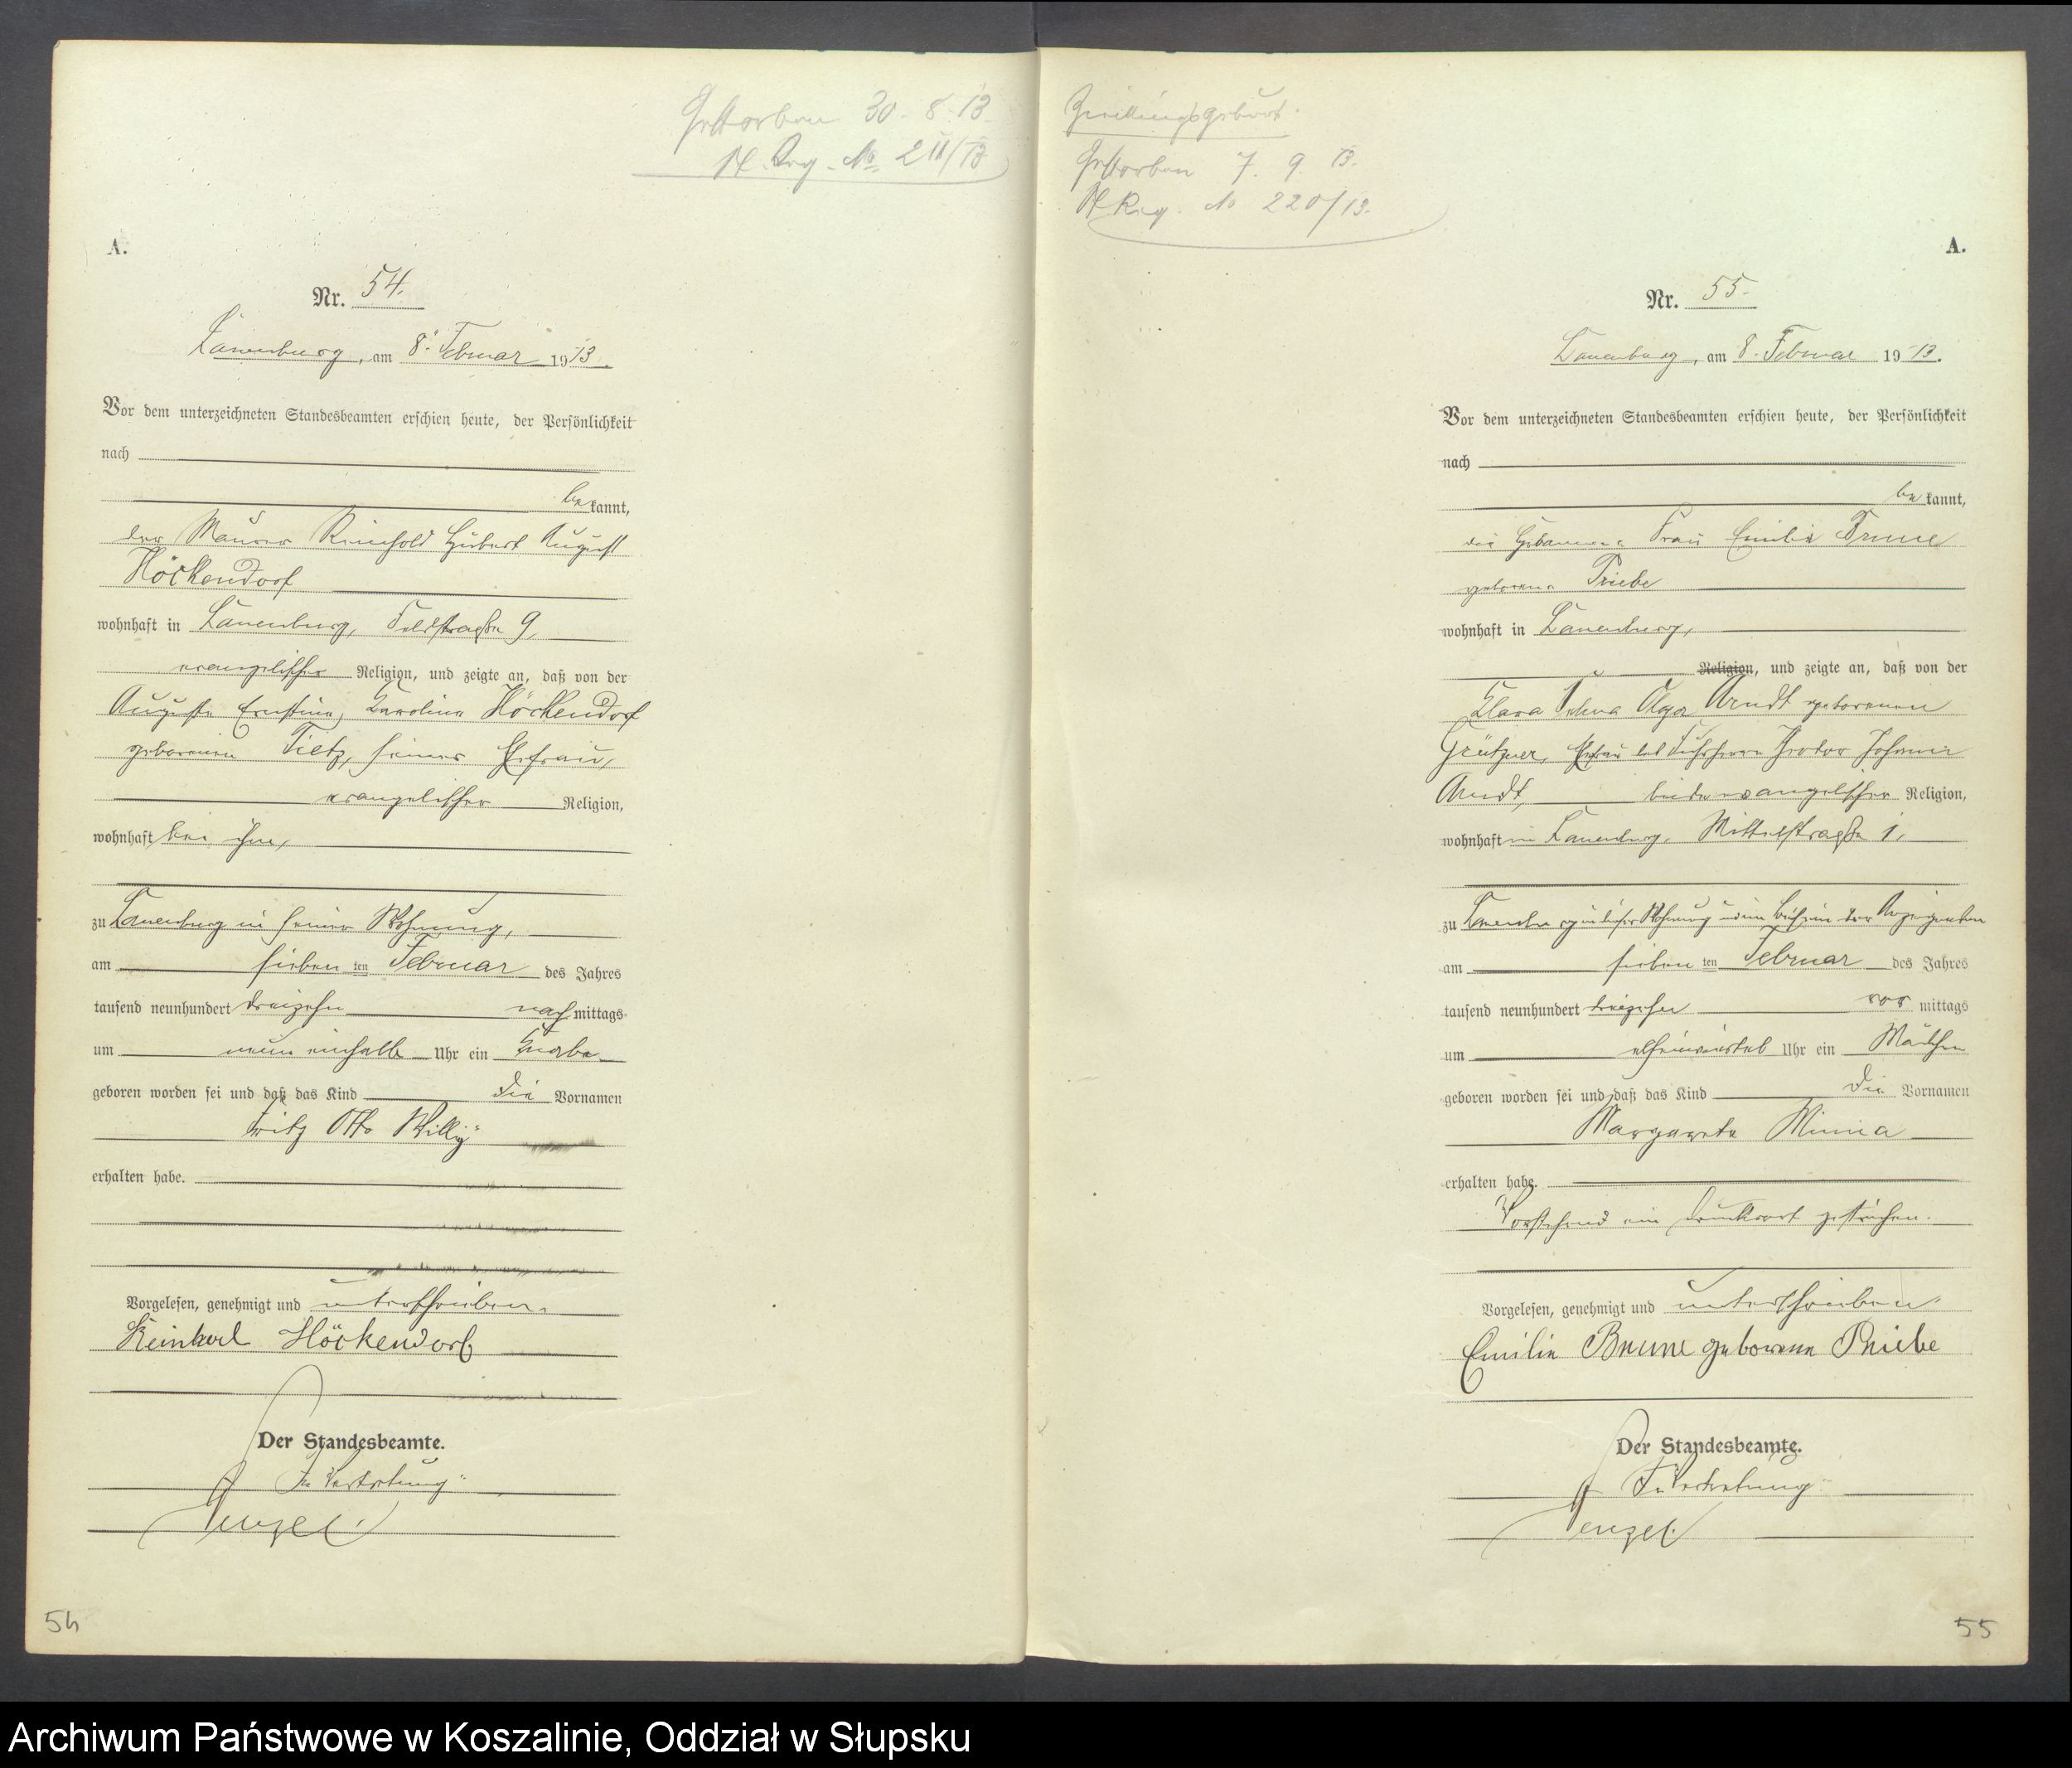 Gestorben 30. 8. 13.
St. Reg. No 211/13
A.
Nr. 54.
Lauenburg, am 8. Februar 1913.
Vor dem unterzeichneten Standesbeamten erschien heute, der Persönlichkeit
nach
bekannt,
der Maurer Reinhold Hubert August
Höckendorf
wohnhaft in Lauenburg, Feldstraße 9,
evangelischer Religion, und zeigte an, daß von der
Auguste Ernstine Karoline Höckendorf
geborenen Tietz, seiner Ehefrau,
evangelischer Religion,
wohnhaft bei ihm,
zu Lauenburg in seiner Wohnung,
am sieben ten Februar des Jahres
tausend neunhundert dreizehn nachmittags
um neun einhalb Uhr ein Knabe
geboren worden sei und daß das Kind die Vornamen
Fritz Otto Willy
erhalten habe.
Vorgelesen, genehmigt und unterschrieben.
Reinhold Höckendorf
Der Standesbeamte.
In Vertretung:
54
Zwillingsgeburt.
Gestorben 7. 9. 13.
St. Reg. No 220/13.
A.
Nr. 55.
Lauenburg, am 8. Februar 1913.
Vor dem unterzeichneten Standesbeamten erschien heute, der Persönlichkeit
nach
bekannt,
die Hebamme Frau Emilie Brune
geborene Priebe
wohnhaft in Lauenburg,
Religion, und zeigte an, daß von der
Klara Selma Olga Arndt geborenen
Grützner, Ehefrau des Fuhrherrn Johann
Arndt, beide evangelischer Religion,
wohnhaft in Lauenburg, Mittelstraße 1,
zu Lauenburg in dieser Wohnung und im Beisein der Anzeigenden
am sieben ten Februar des Jahres
tausend neunhundert dreizehn vormittags
um elf einviertel Uhr ein Mädchen
geboren worden sei und daß das Kind die Vornamen
Margarete Minna
erhalten habe.
Vorstehend ein Druckwort gestrichen.
Vorgelesen, genehmigt und unterschrieben
Emilie Brune geborene Priebe
Der Standesbeamte.
In Vertretung:
55
Archiwum Państwowe w Koszalinie, Oddział w Słupsku